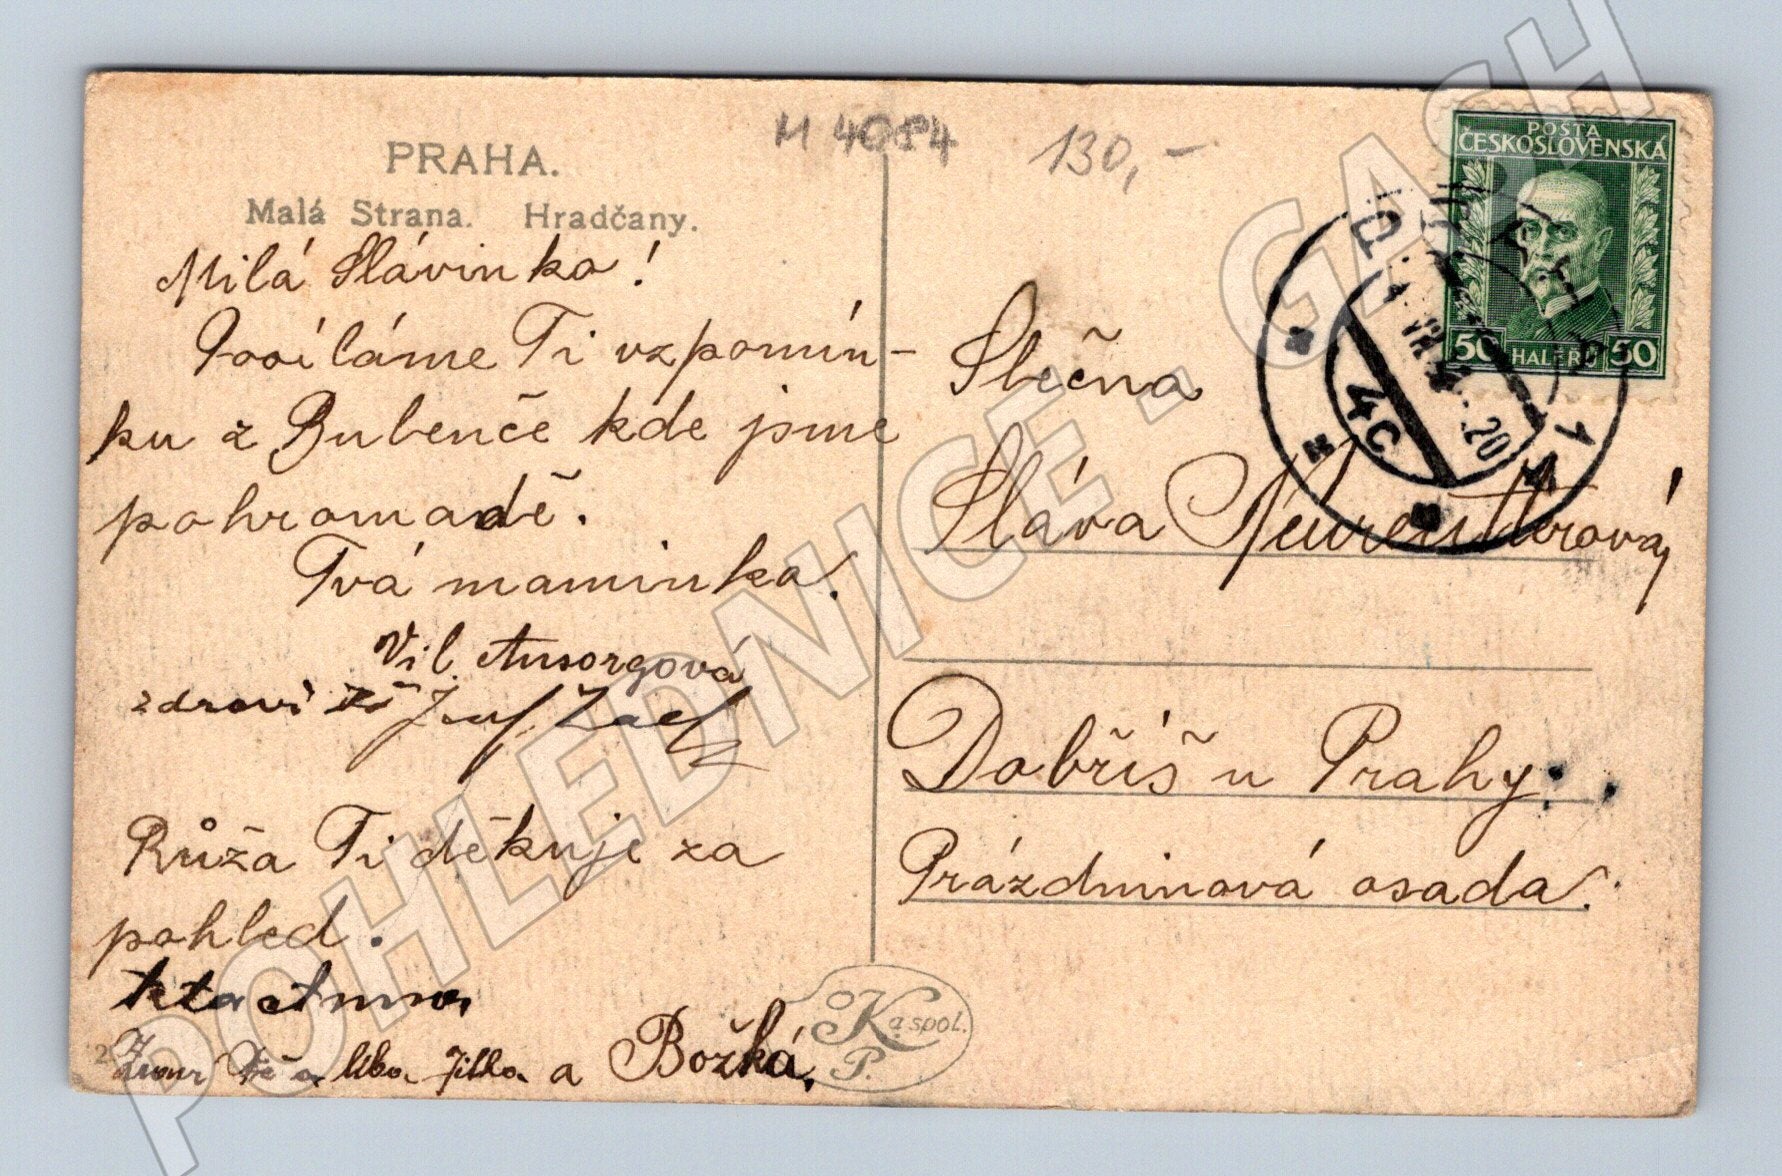 M 4084 130,-
PRAHA.
Malá Strana. Hradčany.
Milá Slávinko!
Posíláme Ti vzpomín-
ku z Bubenče kde jsme
pohromadě.
Tvá maminka.
Vil. Ansorgová
zdraví Tě Josef
Růža Ti děkuje za
pohled.
teta Anna
líbá Jitka a Božka,
K. a spol.
P.
POŠTA
ČESKOSLOVENSKÁ
50 HALÉŘŮ 50
PRAHA 1
4c
20
Slečna
Sláva Neureutterová,
Dobříš u Prahy.
Prázdninová osada.
POHLEDNICE - GASH